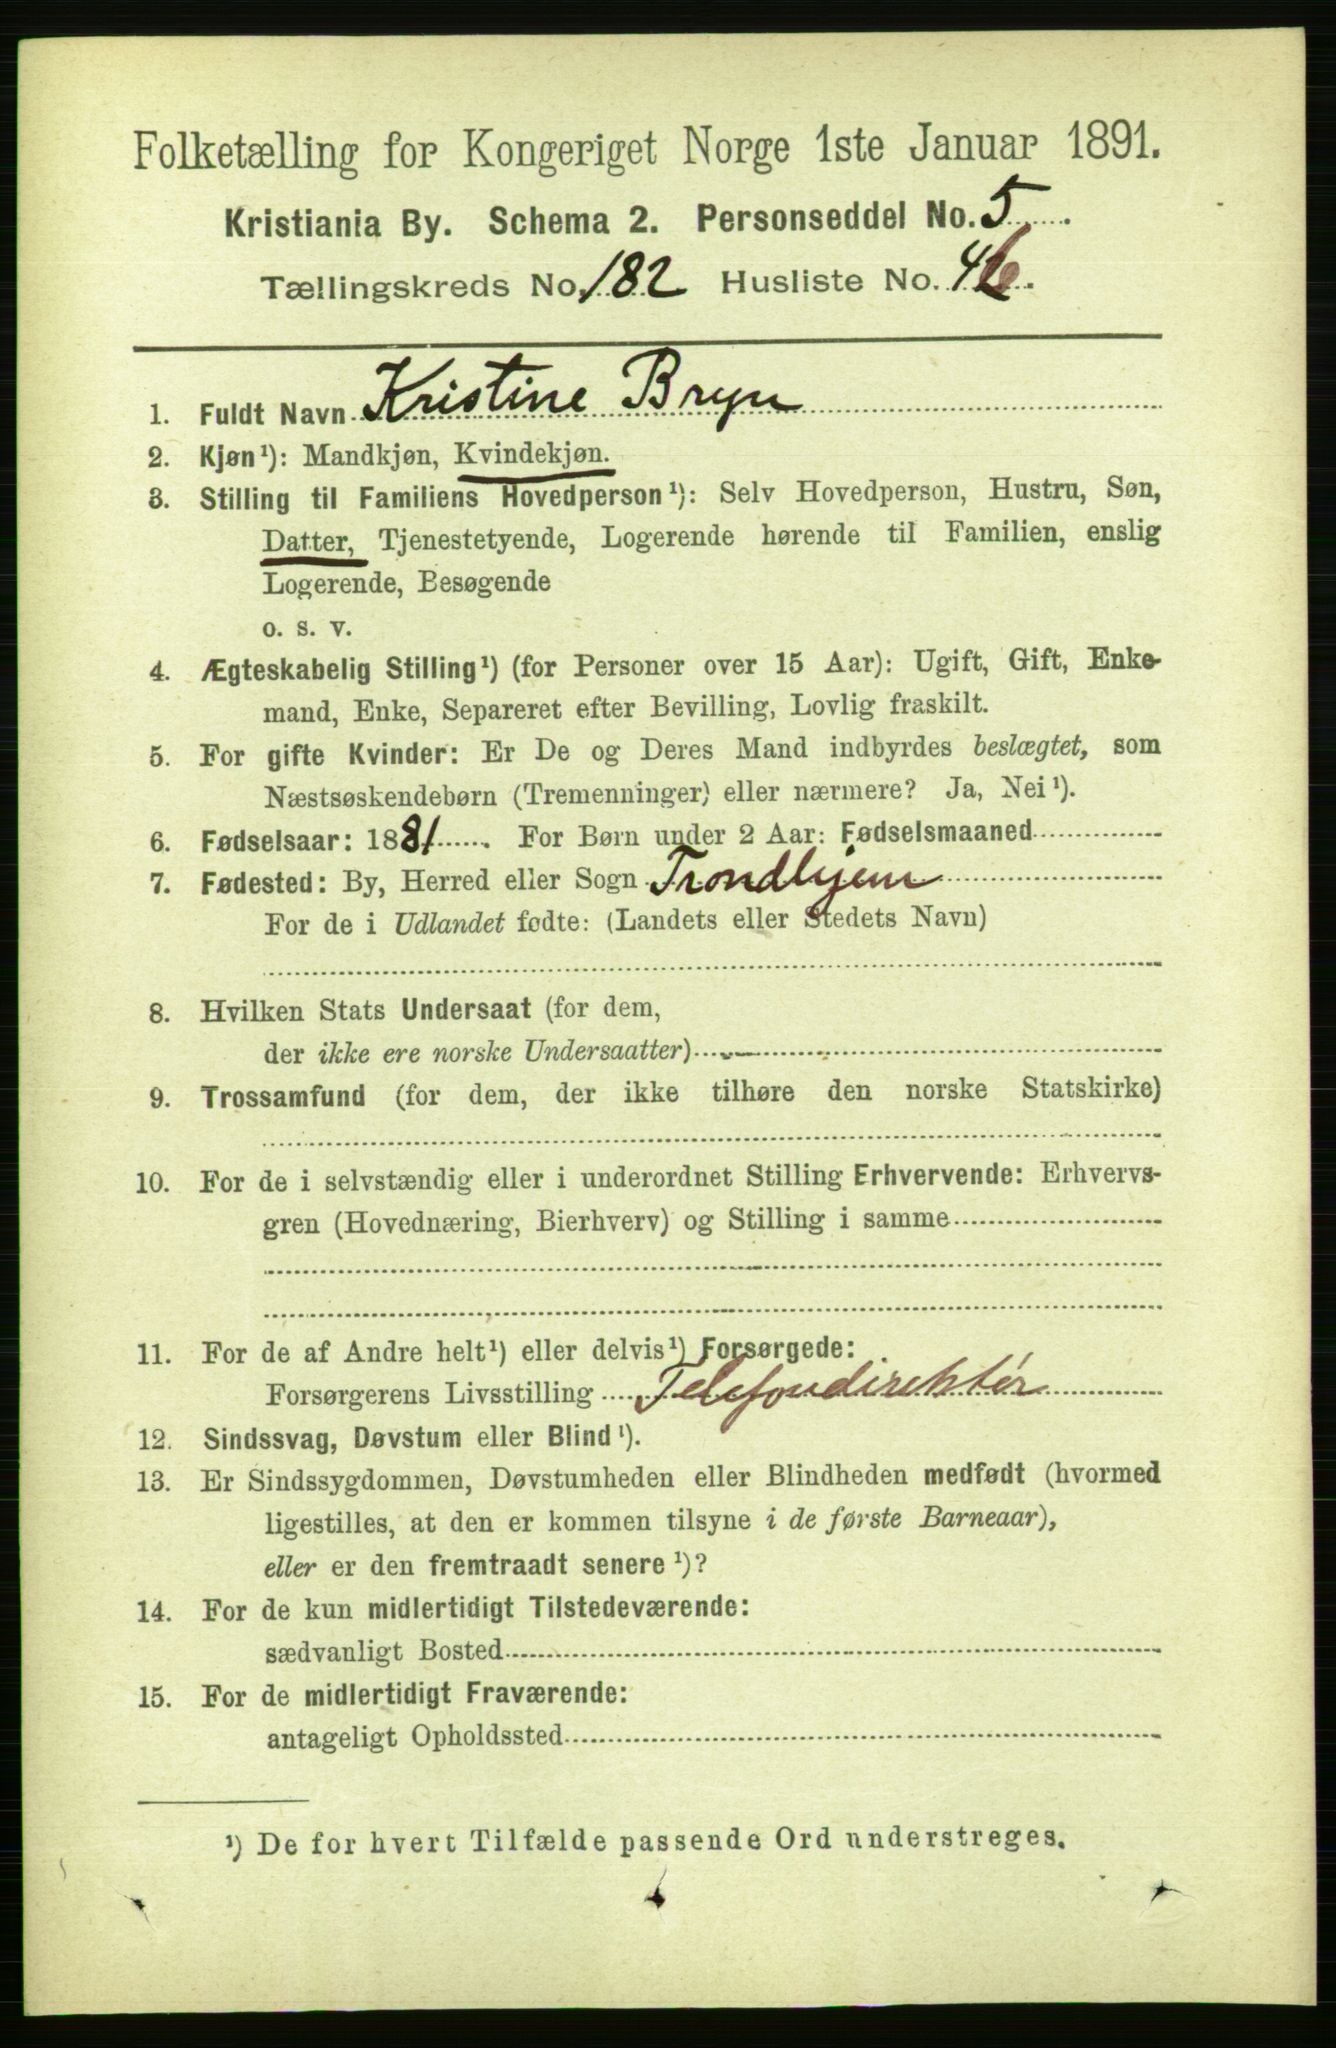 Folketælling for Kongeriget Norge 1ste Januar 1891.
Kristiania By. Schema 2. Personseddel No. 5.
Tællingskreds No. 182 Husliste No. 46.
1. Fuldt Navn Kristine Bryn
2. Kjøn¹): Mandkjøn, Kvindekjøn.
3. Stilling til Familiens Hovedperson¹): Selv Hovedperson, Hustru, Søn,
Datter, Tjenestetyende, Logerende hørende til Familien, enslig
Logerende, Besøgende
o. s. v.
4. Ægteskabelig Stilling¹) (for Personer over 15 Aar): Ugift, Gift, Enke-
mand, Enke, Separeret efter Bevilling, Lovlig fraskilt.
5. For gifte Kvinder: Er De og Deres Mand indbyrdes beslægtet, som
Næstsøskendebørn (Tremenninger) eller nærmere? Ja, Nei¹).
6. Fødselsaar: 1881. For Børn under 2 Aar: Fødselsmaaned
7. Fødested: By, Herred eller Sogn Trondhjem
For de i Udlandet fødte: (Landets eller Stedets Navn)
8. Hvilken Stats Undersaat (for dem,
der ikke ere norske Undersaatter)
9. Trossamfund (for dem, der ikke tilhøre den norske Statskirke)
10. For de i selvstændig eller i underordnet Stilling Erhvervende: Erhvervs-
gren (Hovednæring, Bierhverv) og Stilling i samme
11. For de af Andre helt¹) eller delvis¹) Forsørgede:
Forsørgerens Livsstilling Telefondirektör
12. Sindssvag, Døvstum eller Blind¹).
13. Er Sindssygdommen, Døvstumheden eller Blindheden medfødt (hvormed
ligestilles, at den er kommen tilsyne i de første Barneaar),
eller er den fremtraadt senere¹)?
14. For de kun midlertidigt Tilstedeværende:
sædvanligt Bosted
15. For de midlertidigt Fraværende:
antageligt Opholdssted
¹) De for hvert Tilfælde passende Ord understreges.